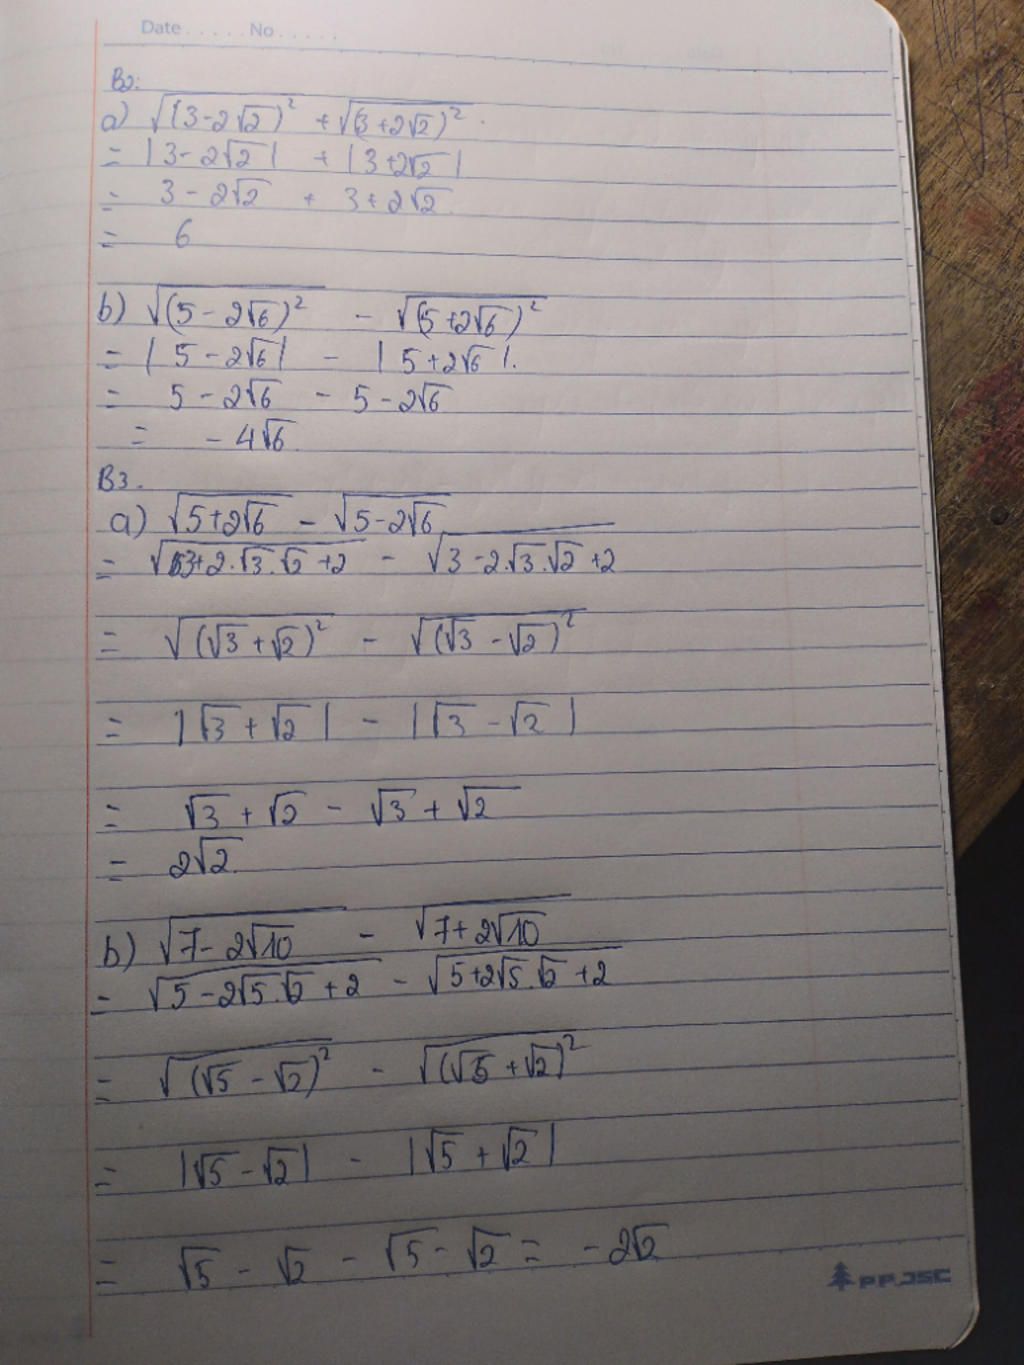 Date ..... No .....
B2:
a) √(3-2√2)² + √(3+2√2)².
= |3-2√2| + |3+2√2|
= 3-2√2 + 3+2√2.
= 6
b) √(5-2√6)² - √(5+2√6)²
= |5-2√6| - |5+2√6|.
= 5-2√6 - 5-2√6
= -4√6.
B3.
a) √5+2√6 - √5-2√6
= √3+2.√3.√2+2 - √3-2.√3.√2+2
= √(√3+√2)² - √(√3-√2)²
= |√3+√2| - |√3-√2|
= √3+√2 - √3+√2
= 2√2.
b) √7-2√10 - √7+2√10
= √5-2√5.√2+2 - √5+2√5.√2+2
= √(√5-√2)² - √(√5+√2)²
= |√5-√2| - |√5+√2|
= √5-√2 - √5-√2 = -2√2
P.P.JSC